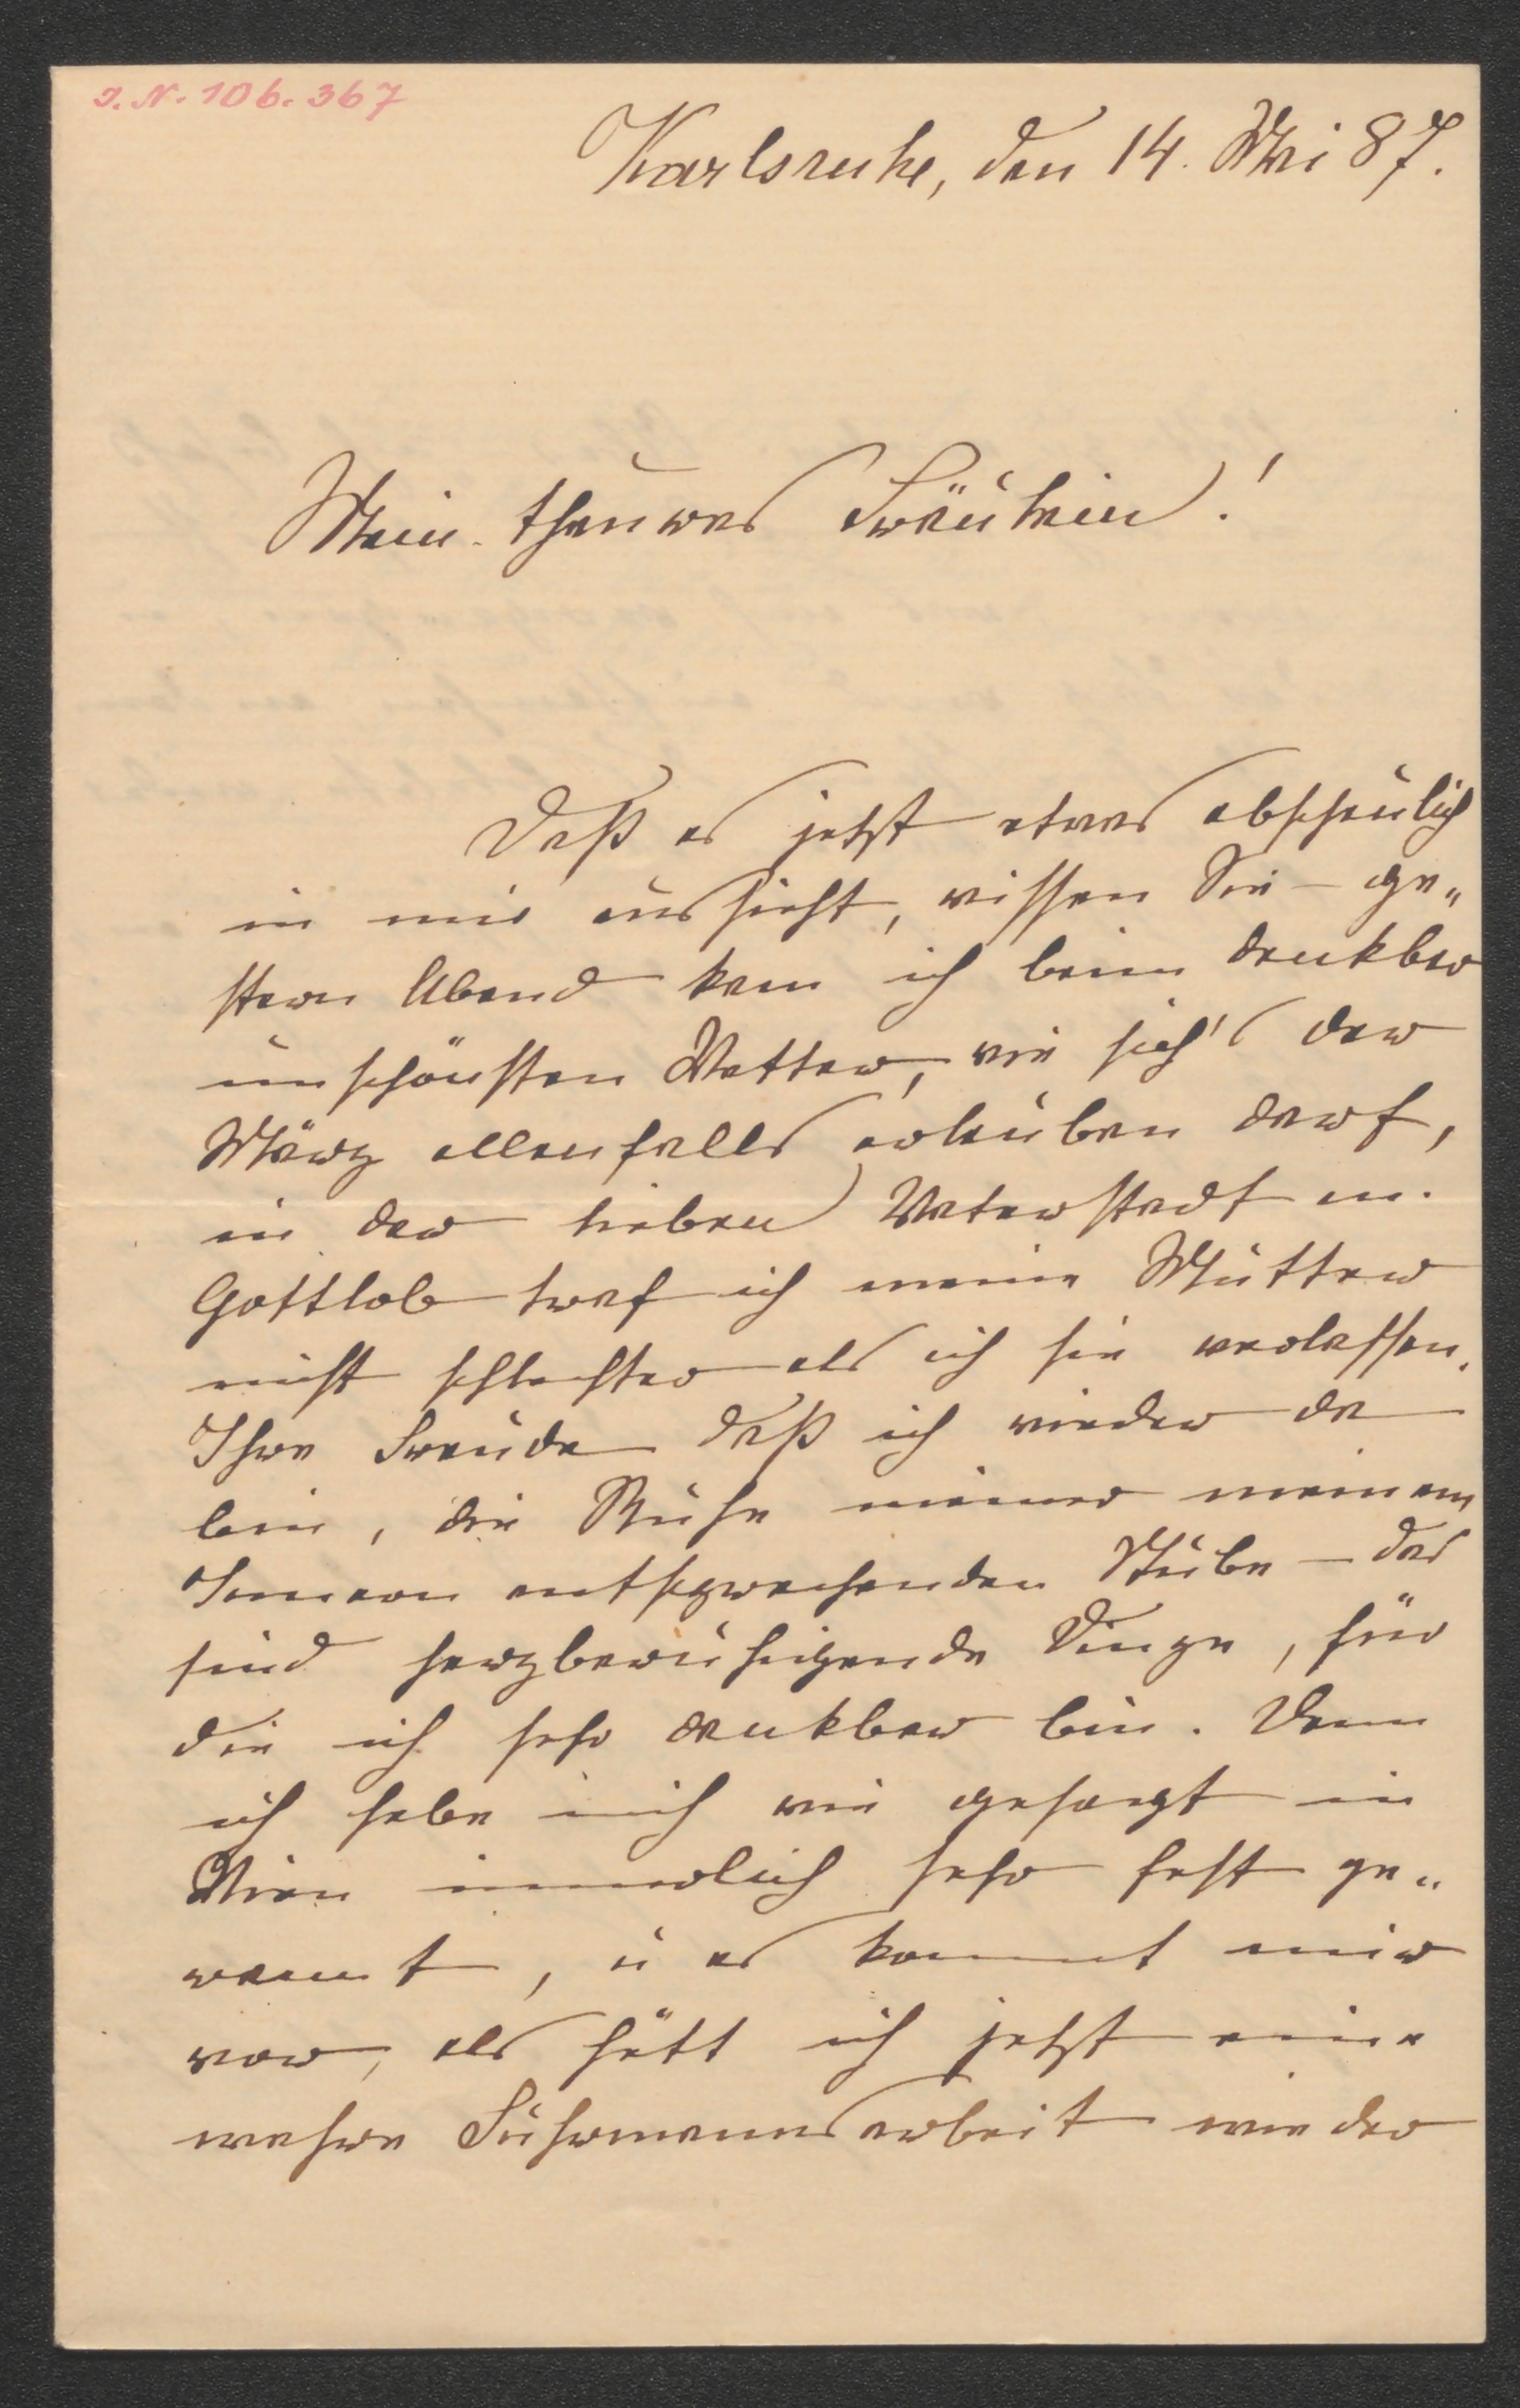 I. N. 106.367
Karlsruhe, den 14. Mai 87.
Mein theures Fräulein!
Daß es jetzt etwas abscheulich
in mir aussieht, wissen Sie – ge„
stern Abend kam ich beim denkbar
unschönsten Wetter, wie sich's der
März allenfalls erlauben darf,
in der lieben Vaterstadt an.
Gottlob traf ich meine Mutter
nicht schlechter als ich sie verlassen.
Ihre Freude daß ich wieder da
bin, die Ruhe meiner meinem
Innern entsprechenden Stube – das
sind herzberuhigende Dinge, für
die ich sehr dankbar bin. Denn
ich habe mich wie gesagt in
Wien innerlich sehr fest ge„
rannt, u es kommt mir
vor, als hätt ich jetzt eine
wahre Fuhrmannsarbeit wieder